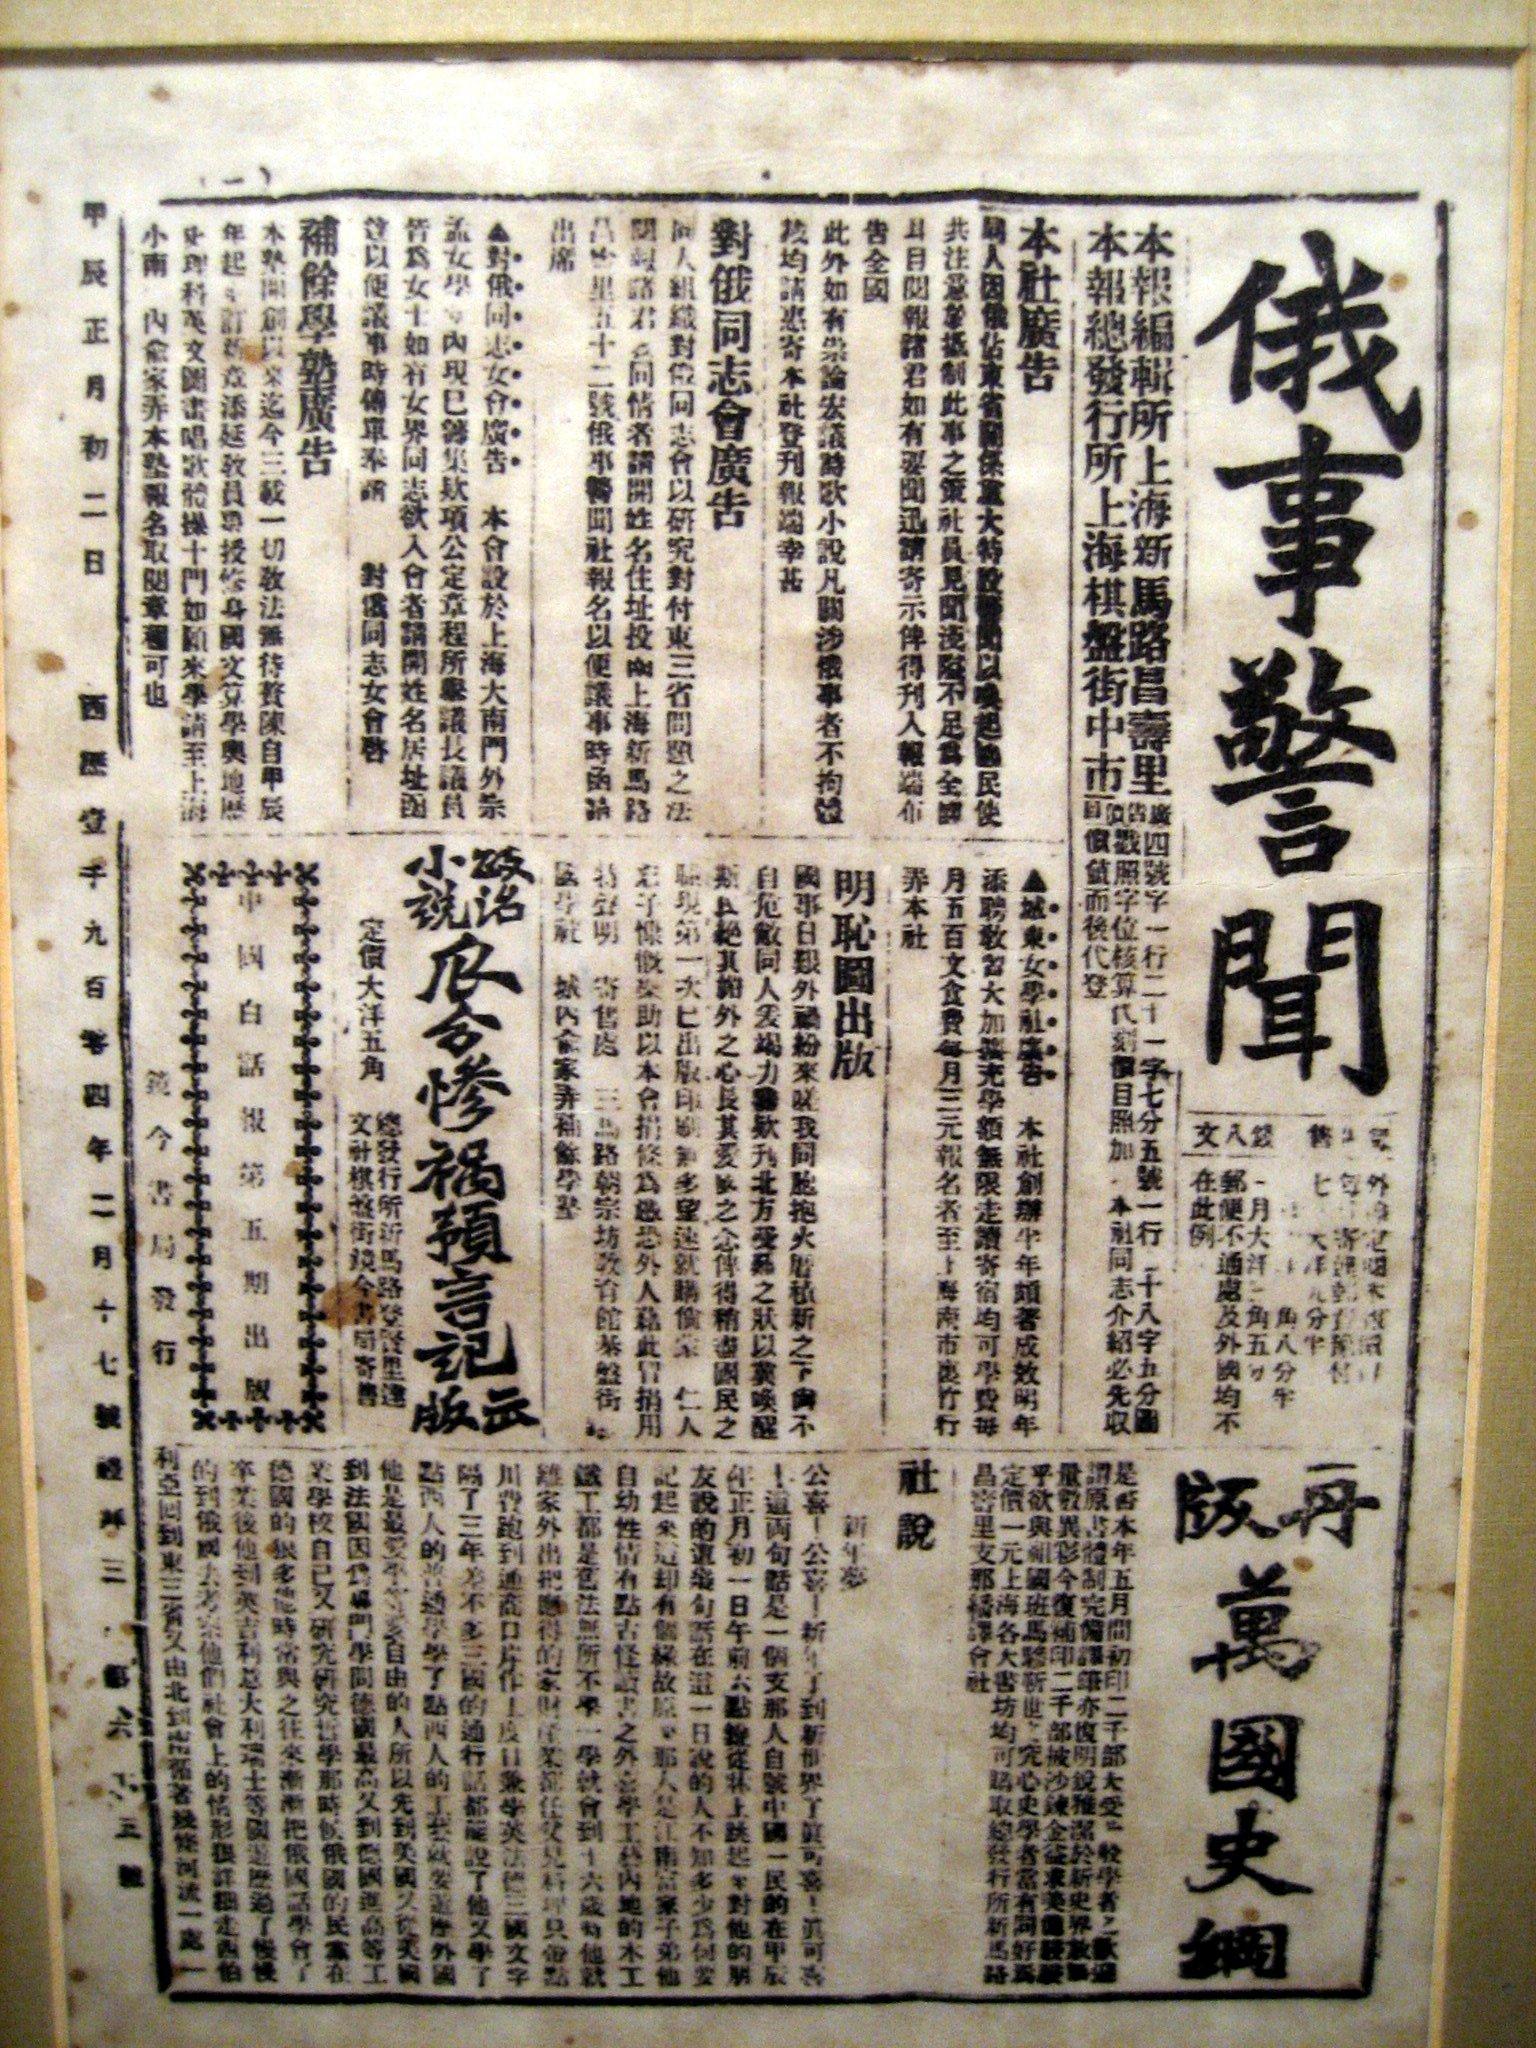 俄事警聞
本報編輯所上海新馬路昌壽里
本報總發行所上海棋盤街中市
廣告
四號字一行二十一字七分五號一行二十八字五分圖
畫戳照字位核算代刻價目照加
本社同志介紹必先收
價值而後代登
郵便不通處及外國均不
在此例
本社廣告
同人因俄佔東省關係重大特設警聞以喚起國民使
共注意
抵制此事之策社員見聞淺隘不足為全國
耳目閱報諸君如有要聞迅請寄示俾得刊入報端布
告全國
此外如有崇論宏議詩歌小說凡關涉俄事者不拘體
裁均請惠寄本社登刊報端幸甚
對俄同志會廣告
同人組織對俄同志會以研究對付東三省問題之法
閱報諸君
同情者請開姓名住址投函上海新馬路
昌壽里五十二號俄事警聞社報名以便議事時函請
出席
▲對俄同志女會廣告
本會設於上海大南門外宗
孟女學
內現已籌集欵項公定章程所舉議長議員
皆為女士如有女界同志欲入會者請開姓名居址函
以便議事時傳單奉請
對俄同志女會啓
補餘學塾廣告
本塾開創以來迄今三載一切敎法無待贅陳自甲辰
年起
訂新章添延敎員專授修身國文算學輿地歷
史理科英文圖畫唱歌體操十門如願來學請至上海
小南
內俞家弄本塾報名取閱章程可也
▲城東女學社廣告
本社創辦半年頗著成效明年
添聘敎習大加擴充學額無限走讀寄宿均可學費每
月五百文食費每月三元報名者至上海南市裏竹行
弄本社
明恥圖出版
國事日艱外禍紛來嗟我同胞抱火厝積薪之下尙不
自危敝同人爰竭力籌欵刊北方受
之狀以冀喚醒
之心長其愛
之念俾得稍盡國民之
職現第一次已出版印刷無多望速就購
仁人
君子慷慨樂助以本會捐條為憑恐外人藉此冒捐用
特聲明
寄售處
三馬路朝宗坊敎育館棊盤街
學社
城內俞家弄補餘學塾
政治
小說
瓜分慘禍預言記
出版
定價大洋五角
總發行所新馬路登賢里達
文社棋盤街鏡今書局寄售
中國白話報第五期出版
鏡今書局發行
再版
萬國史綱
是書本年五月間初印二千部大受
教學者之歡迎
謂原書體制完備譯筆亦復明銳雅潔於新史界放
量數異彩今復補印二千部披沙鍊金益求美備
乎欲與祖國班馬
新世之究心史學者當有同好焉
定價一元上海各大書坊均可購取總發行所新馬路
昌壽里支那繙譯會社
社說
新年夢
公喜！公喜！新年了到新世界了眞可喜！眞可喜
！這兩句話是一個支那人自號中國一民的在甲辰
年正月初一日午前六點鐘從牀上跳起來對他的朋
友說的這幾句話在這一日說的人不知多少為何要
記起來這却有個緣故原來那人是江南富家子弟他
自幼性情有點古怪讀書之外喜學工藝內地的木工
鐵工都是舊法無所不學一學就會到十六歲時他就
離家外出把應得的家財產業都任父兄料理只帶點
川費跑到通商口岸作工度日兼學英法德三國文字
隔了三年差不多三國的通行話都能說了他又學了
點西人的普通學學了點西人的工藝就要遊歷外國
他是最愛平等愛自由的人所以先到美國又從美國
到法國因為專門學問德國最高又到德國進高等工
業學校自己又研究研究哲學那時候俄國的民黨在
德國的狠多他時常與之往來漸漸把俄國話學會了
卒業後他到英吉利意大利瑞士等國遊歷過了慢慢
的到俄國去考察他們社會上的情形狠詳細走西伯
利亞回到東三省又由北到南循着幾條河流一處一
甲辰正月初二日
西歷壹千九百零四年二月十七號禮拜三